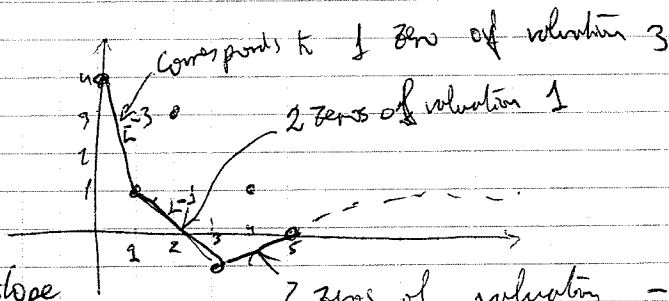 corresponds to 1 zero of valuation 3
4
3
-3
2 zeros of valuation 1
2
1
-1
1
2
3
4
5
slope
2 zeros of valuation -